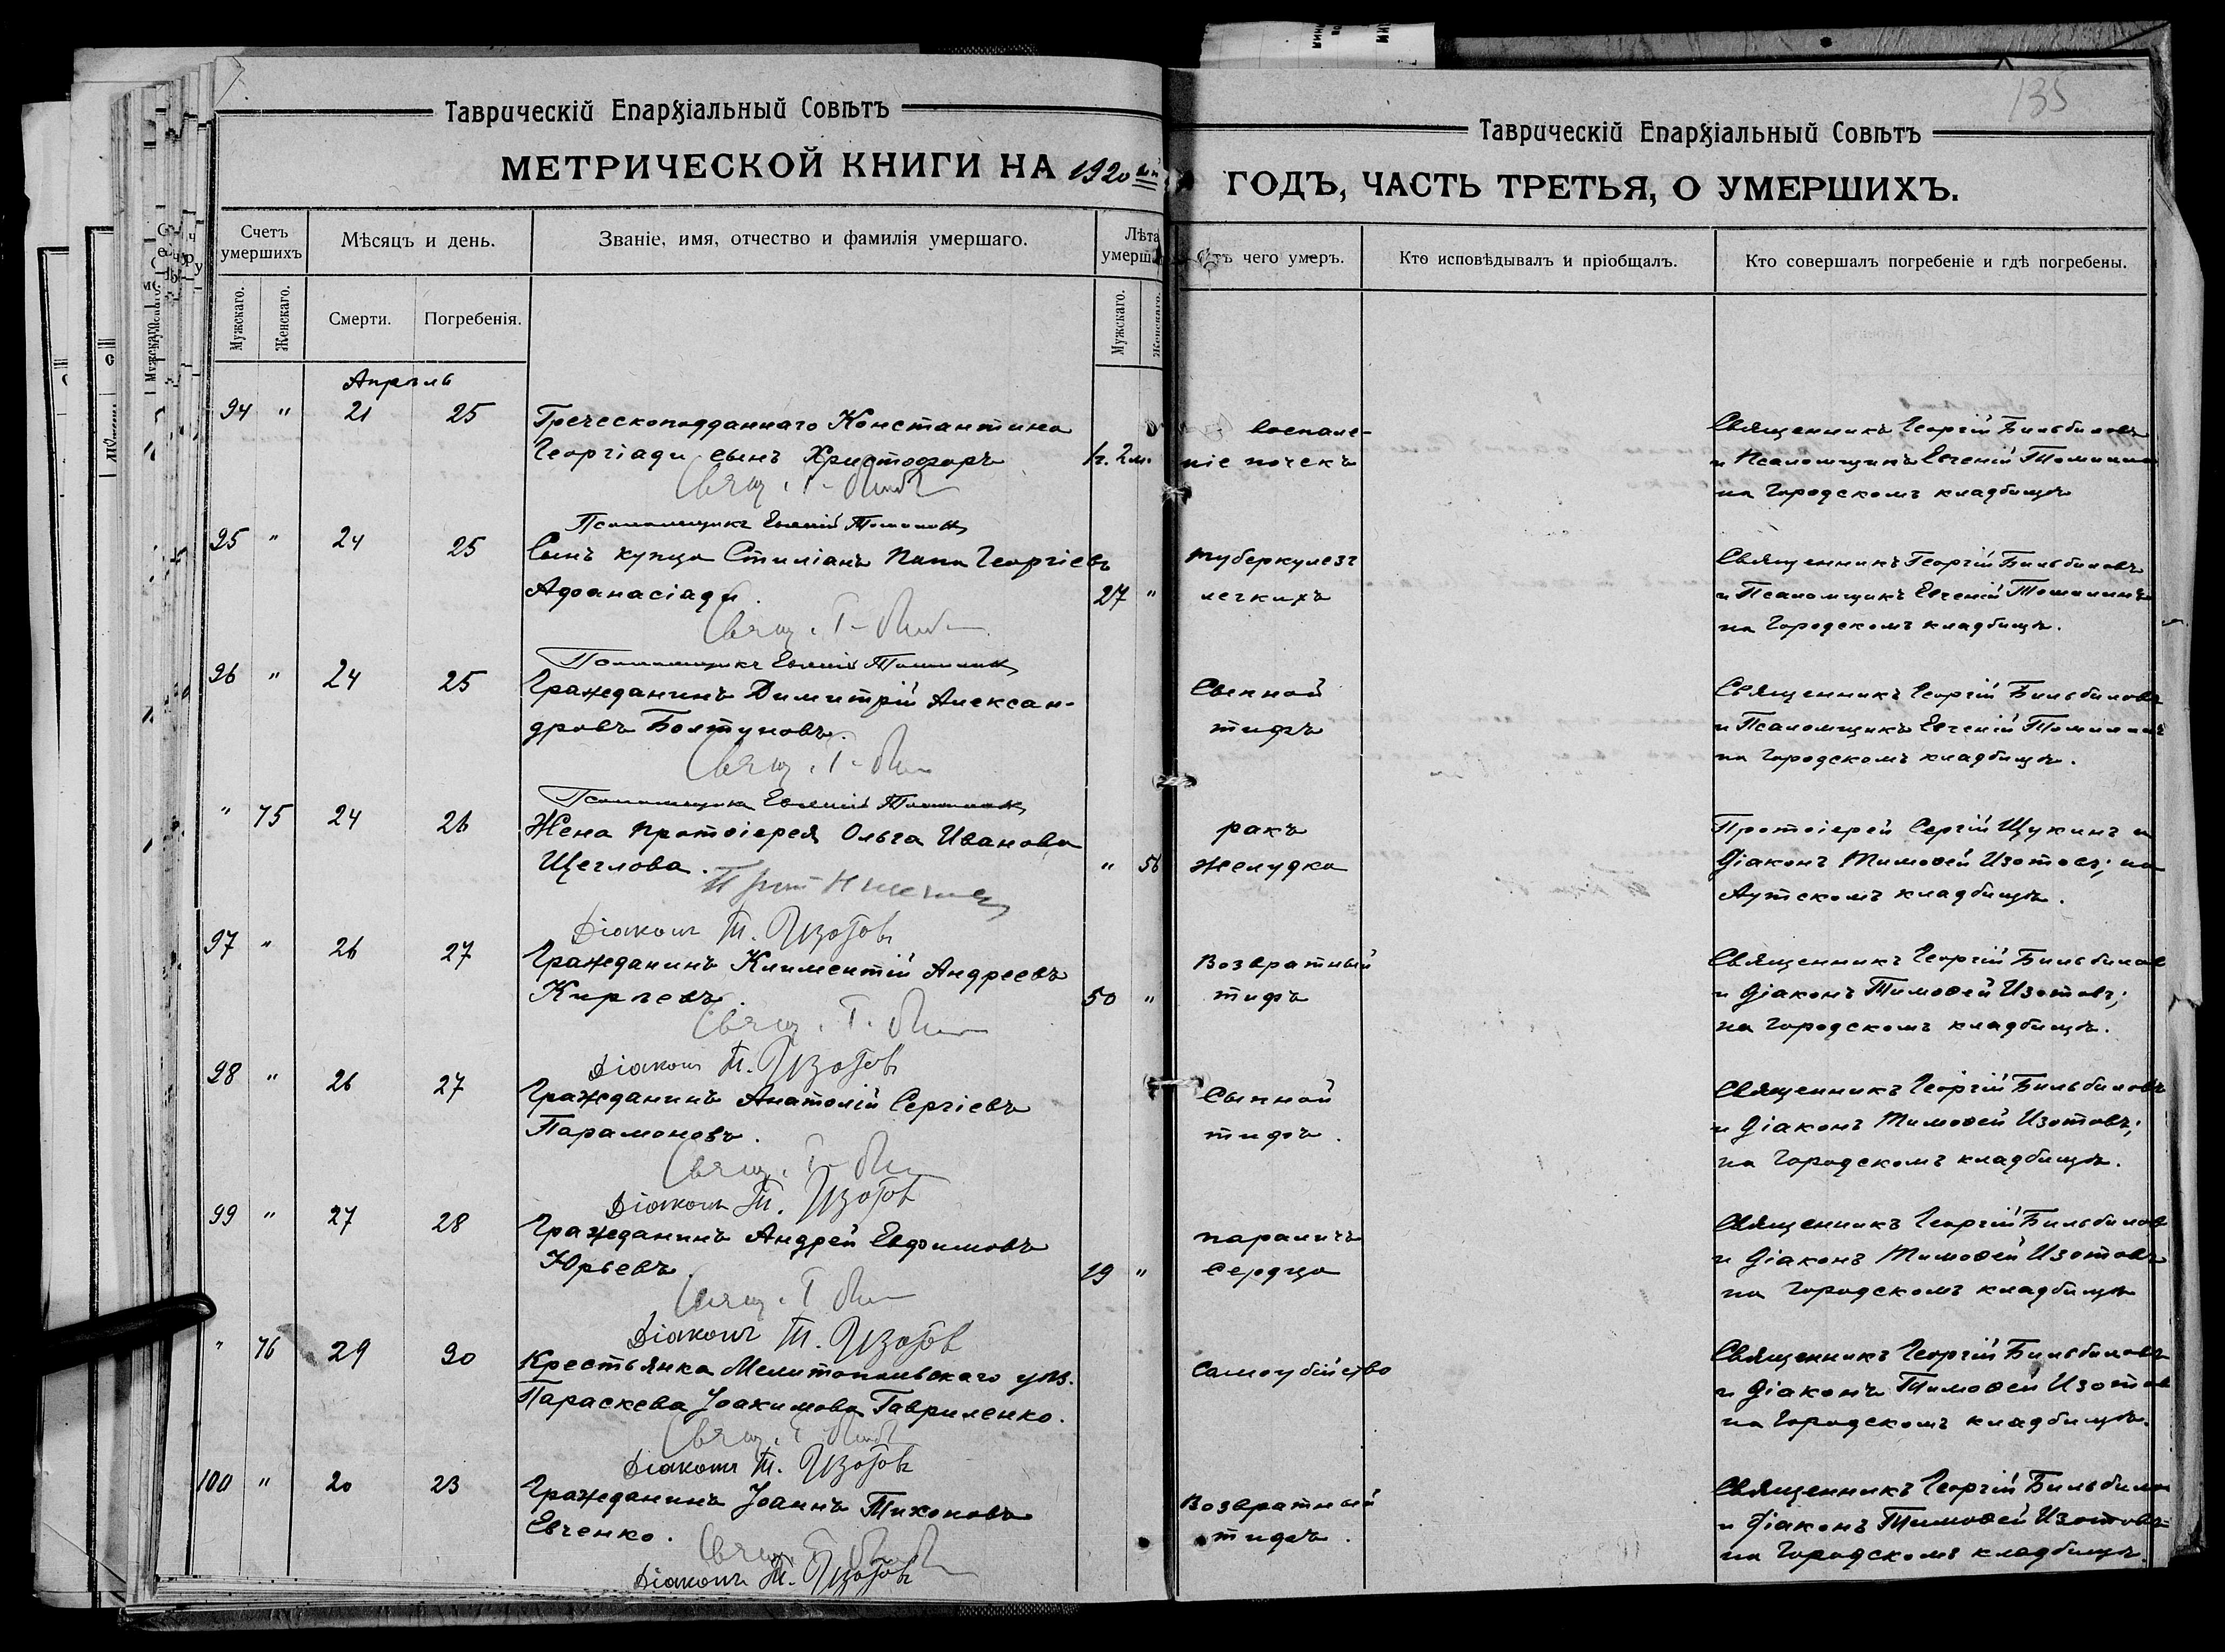 135
Таврическій Епархіальный Совѣтъ
МЕТРИЧЕСКОЙ КНИГИ НА 1920
Таврическій Епархіальный Совѣтъ
ГОДЪ, ЧАСТЬ ТРЕТЬЯ, О УМЕРШИХЪ.
Счетъ умершихъ
Мѣсяцъ и день.
Званіе, имя, отчество и фамилія умершаго.
Лѣта
Отъ чего умеръ.
Кто исповѣдывалъ и пріобщалъ.
Кто совершалъ погребеніе и гдѣ погребены.
Мужскаго.
Женскаго.
Смерти.
Погребенія.
Мужскаго.
Женскаго.
Апрѣль
94 " 21 25 Греческоподданнаго Константина
Георгіади сынъ Христофоръ
1г. 2м.
воспале-
ніе почекъ
Священникъ Георгій Бильбиловъ
и Псаломщикъ Евгеній
на Городскомъ кладбищѣ
Псаломщикъ Евгеній
95 " 24 25 Сынъ купца Стиліанъ Папа Георгіевъ
Афанасіади.
27 "
туберкулезъ
легкихъ
Священникъ Георгій Бильбиловъ
и Псаломщикъ Евгеній
на Городскомъ кладбищѣ.
Псаломщикъ Евгеній
96 " 24 25 Гражданинъ Димитрій Алексан-
дровъ Болтуновъ.
Сыпной
тифъ
Священникъ Георгій Бильбиловъ
и Псаломщикъ Евгеній
на городскомъ кладбищѣ.
Псаломщикъ Евгеній
" 75 24 26 Жена протоіерея Ольга Иванова
Щеглова.
" 56
ракъ
желудка
Протоіерей Сергій Щукинъ и
Діаконъ Тимоѳей Изотовъ; на
Аутскомъ кладбищѣ.
Діаконъ Т. Изотовъ
97 " 26 27 Гражданинъ Климентій Андреевъ
Кирѣевъ.
50 "
Возвратный
тифъ
Священникъ Георгій Бильбиловъ
и Діаконъ Тимоѳей Изотовъ;
на городскомъ кладбищѣ.
Діаконъ Т. Изотовъ
98 " 26 27 Гражданинъ Анатолій Сергіевъ
Парамоновъ.
Сыпной
тифъ.
Священникъ Георгій Бильбиловъ
и Діаконъ Тимоѳей Изотовъ;
на Городскомъ кладбищѣ.
Діаконъ Т. Изотовъ
99 " 27 28 Гражданинъ Андрей Евфимовъ
Юрьевъ.
19 "
параличъ
сердца
Священникъ Георгій Бильбиловъ
и Діаконъ Тимоѳей Изотовъ
на Городскомъ кладбищѣ
Діаконъ Т. Изотовъ
" 76 29 30 Крестьянка Мелитопольскаго уѣз.
Параскева Іоакимова Гавриленко.
Самоубійство
Священникъ Георгій Бильбиловъ
и Діаконъ Тимоѳей Изотовъ
на Городскомъ кладбищѣ.
Діаконъ Т. Изотовъ
100 " 20 23 Гражданинъ Іоаннъ Тихоновъ
Евченко.
Возвратный
тифъ.
Священникъ Георгій Бильбиловъ
и Діаконъ Тимоѳей Изотовъ
на Городскомъ кладбищѣ.
Діаконъ Т. Изотовъ